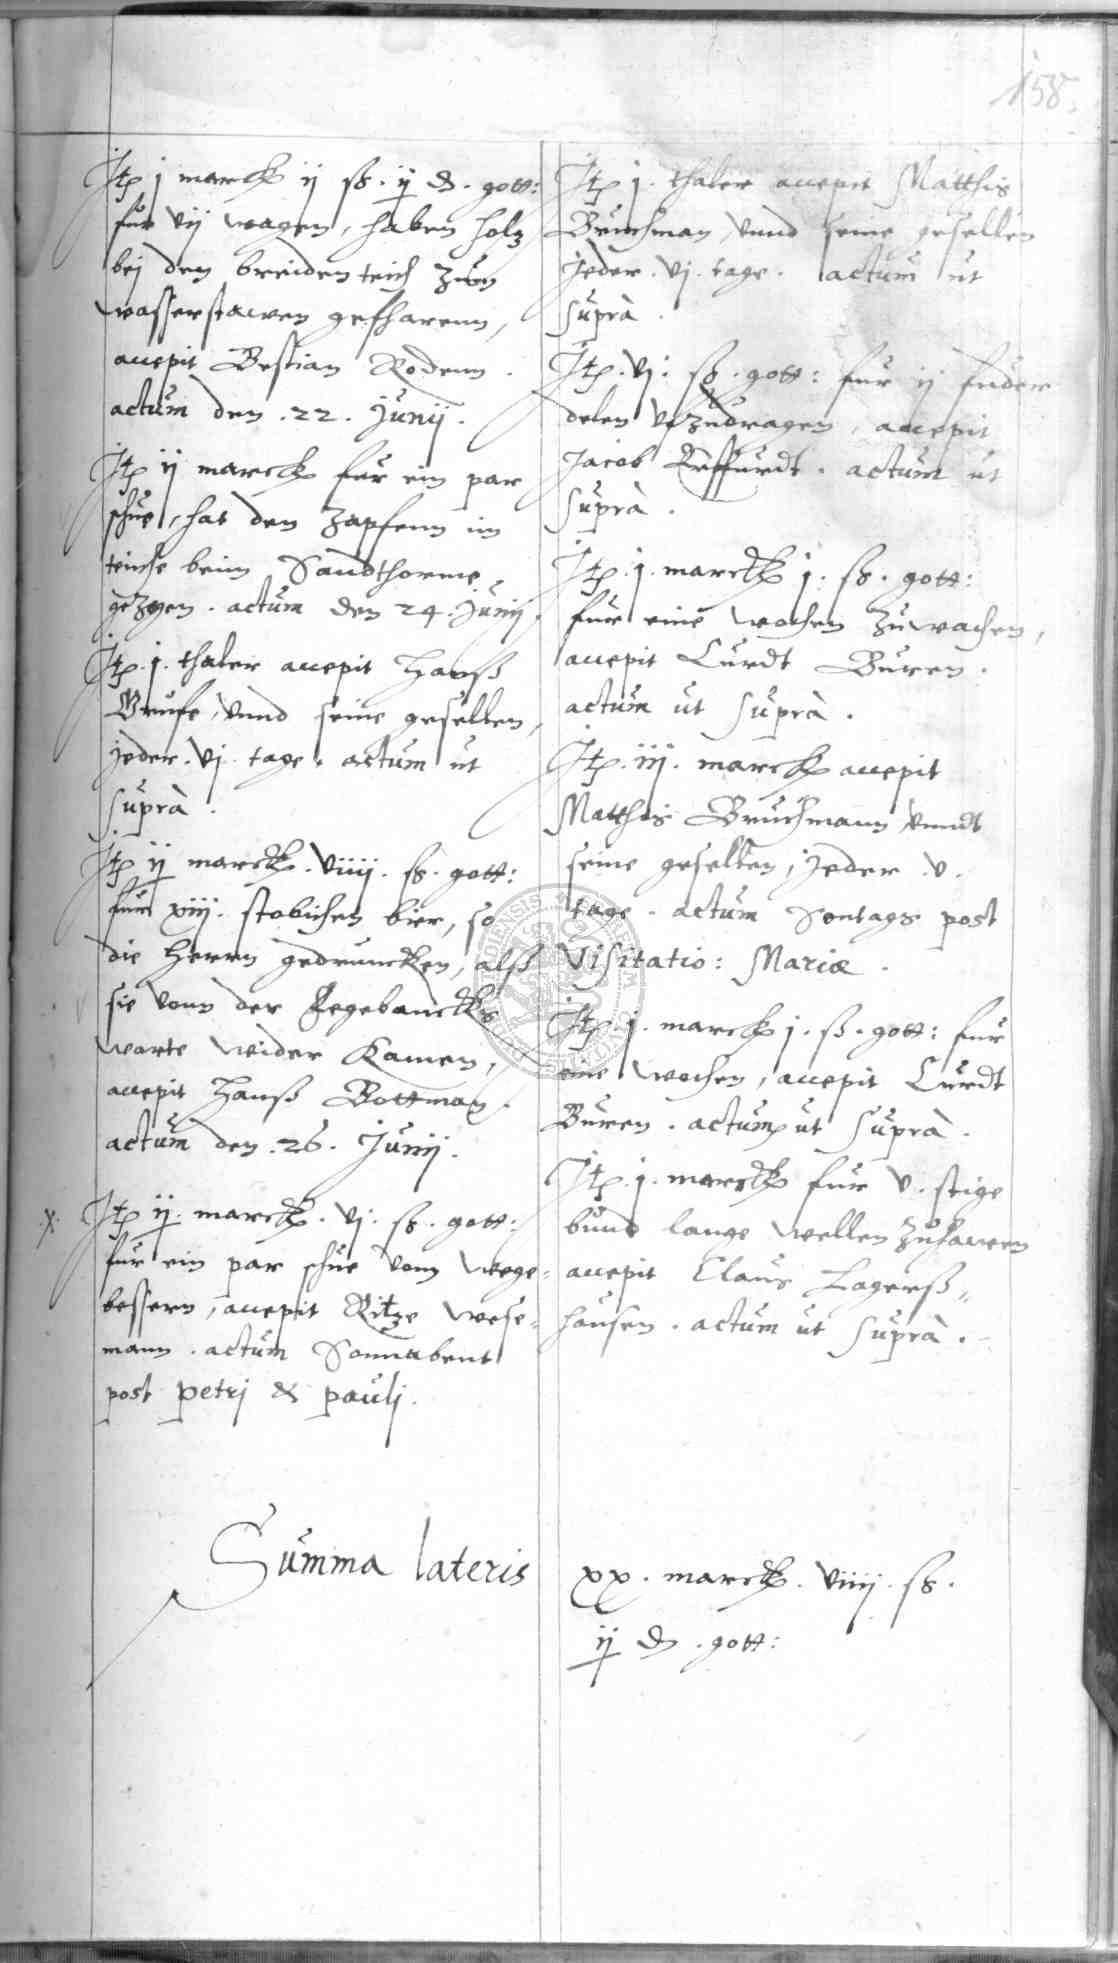 158.
Itℓ j marck ij ß. ij ₰. gott:
fur vij wagen, haben holz
bej den breiden teich zum
wasserstawen gefharenn,
accepit Bestian Rodenn.
actum den .22. Junij.
Itℓ ij marck fur ein par
schue, hat den zapfenn im
teiche beim Sandthorme
gezogen. actum den 24. Junij.
Itℓ. j. thaler accepit Hanß
Grufe, vnnd seine gesellen,
jeder. vj. tage. actum ut
supra.
Itℓ ij marck. viiij. ß. gott:
fur xiij. stobichen bier, so
die Herrn gedruncken, alß
sie vonn der
warte wider kamen,
accepit Hanß Bottman.
actum den .26. Junij.
.x. Itℓ ij. marck. vj. ß. gott:
fur ein par schue vom wege=
bessern, accepit Ritze Wese=
mann. actum Sonnabent
post petri & paulj.
Itℓ j. thaler accepit Matthis
Bruchman, vnnd seine gesellen
jeder. vj. tage. actum ut
suprà.
Itℓ. vj. ß. gott: fur ij fuder
delen vfzudragen, accepit
Jacob Erffurdt. actum ut
suprà.
Itℓ. j. marck j. ß. gott:
fur eine wochen zuwachen,
accepit Curdt Buren.
actum ut suprà.
Itℓ. iij. marck accepit
Matthis Bruchmann vnndt
seine gesellen, jeder .v.
tage. actum Sontags post
Visitatio: Mariæ.
Itℓ. j. marck j. ß. gott: fur
eine wochen, accepit Curdt
Buren. actum ut suprà.
Itℓ. j. marck fur v. stige
bund lange wellen zuhawen
accepit Claus Lagerß„
hausen. actum ut suprà.
Summa lateris xx. marck. viiij. ß.
ij ₰. gott: